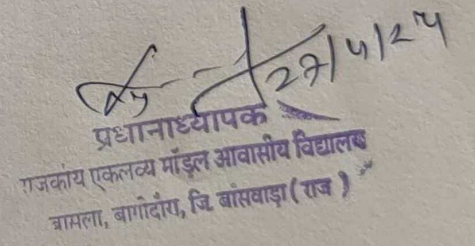 27/5/24
प्रधानाध्यापक
राजकीय एकलव्य मॉडल आवासीय विद्यालय
बामला, बागीदौरा, जि. बांसवाड़ा ( राज )